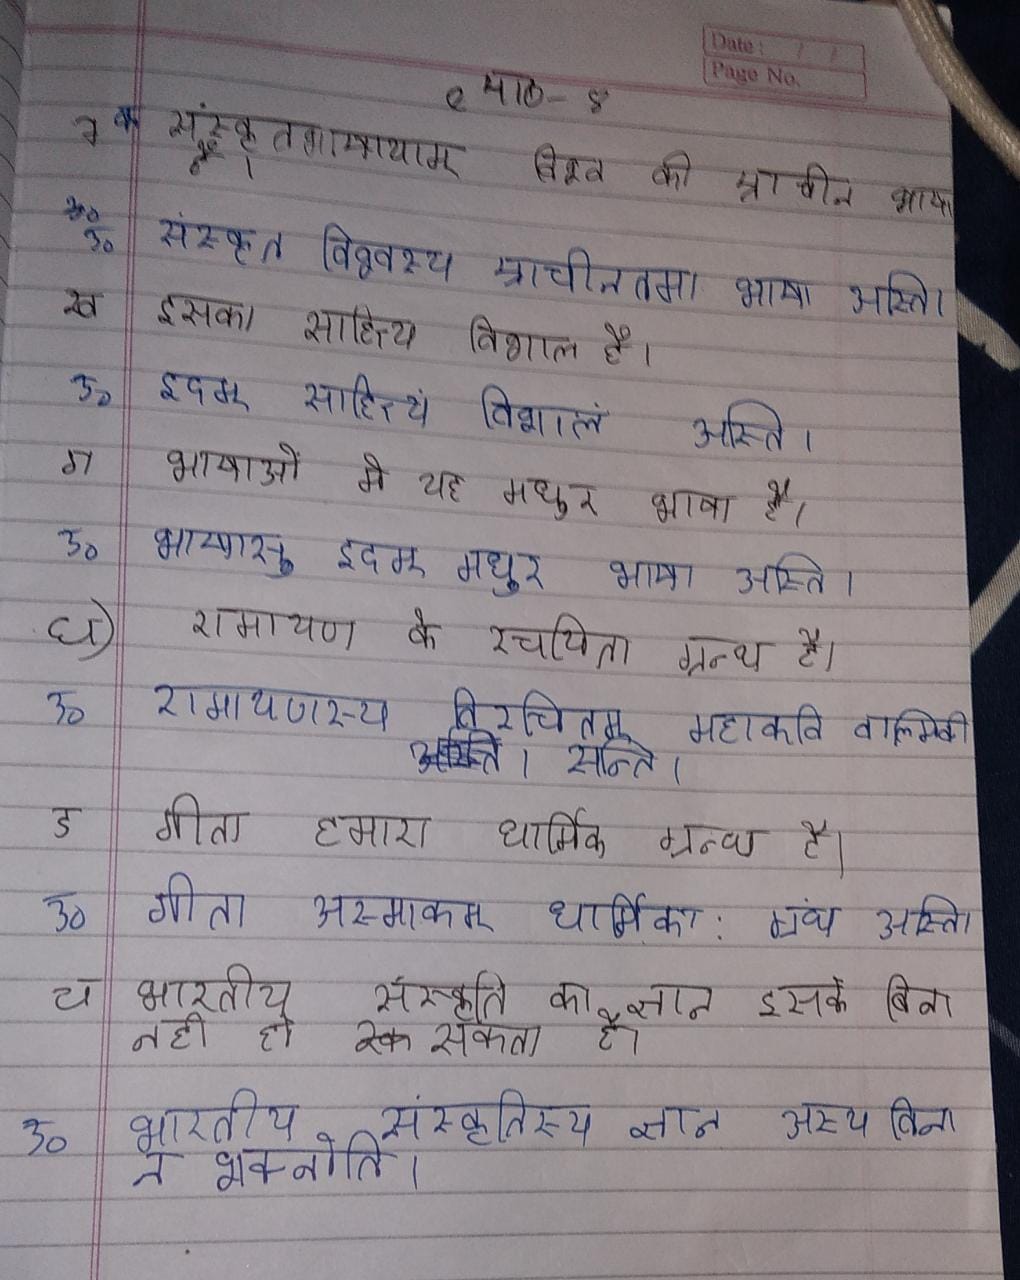 Date: / /
Page No.
पाठ- ४
क संस्कृतभाषायाम् विश्व की प्राचीन भाषा
है।
उ० संस्कृत विश्वस्य प्राचीनतमा भाषा अस्ति।
ख इसका साहित्य विशाल है।
उ० इदम् साहित्यं विशालं अस्ति।
ग भाषाओ मे यह मधुर भाषा है।
उ० भाषासु इदम् मधुर भाषा अस्ति।
घ) रामायण के रचयिता ग्रन्थ है।
उ० रामायणस्य विरचितम् महाकवि वाल्मिकी
सन्ति।
ड गीता हमारा धार्मिक ग्रन्थ है।
उ० गीता अस्माकम् धार्मिका: ग्रंथ अस्ति।
च भारतीय संस्कृति का ज्ञान इसके बिना
नही हो सकता है।
उ० भारतीय संस्कृतिस्य ज्ञान अस्य विना
न शक्नोति।